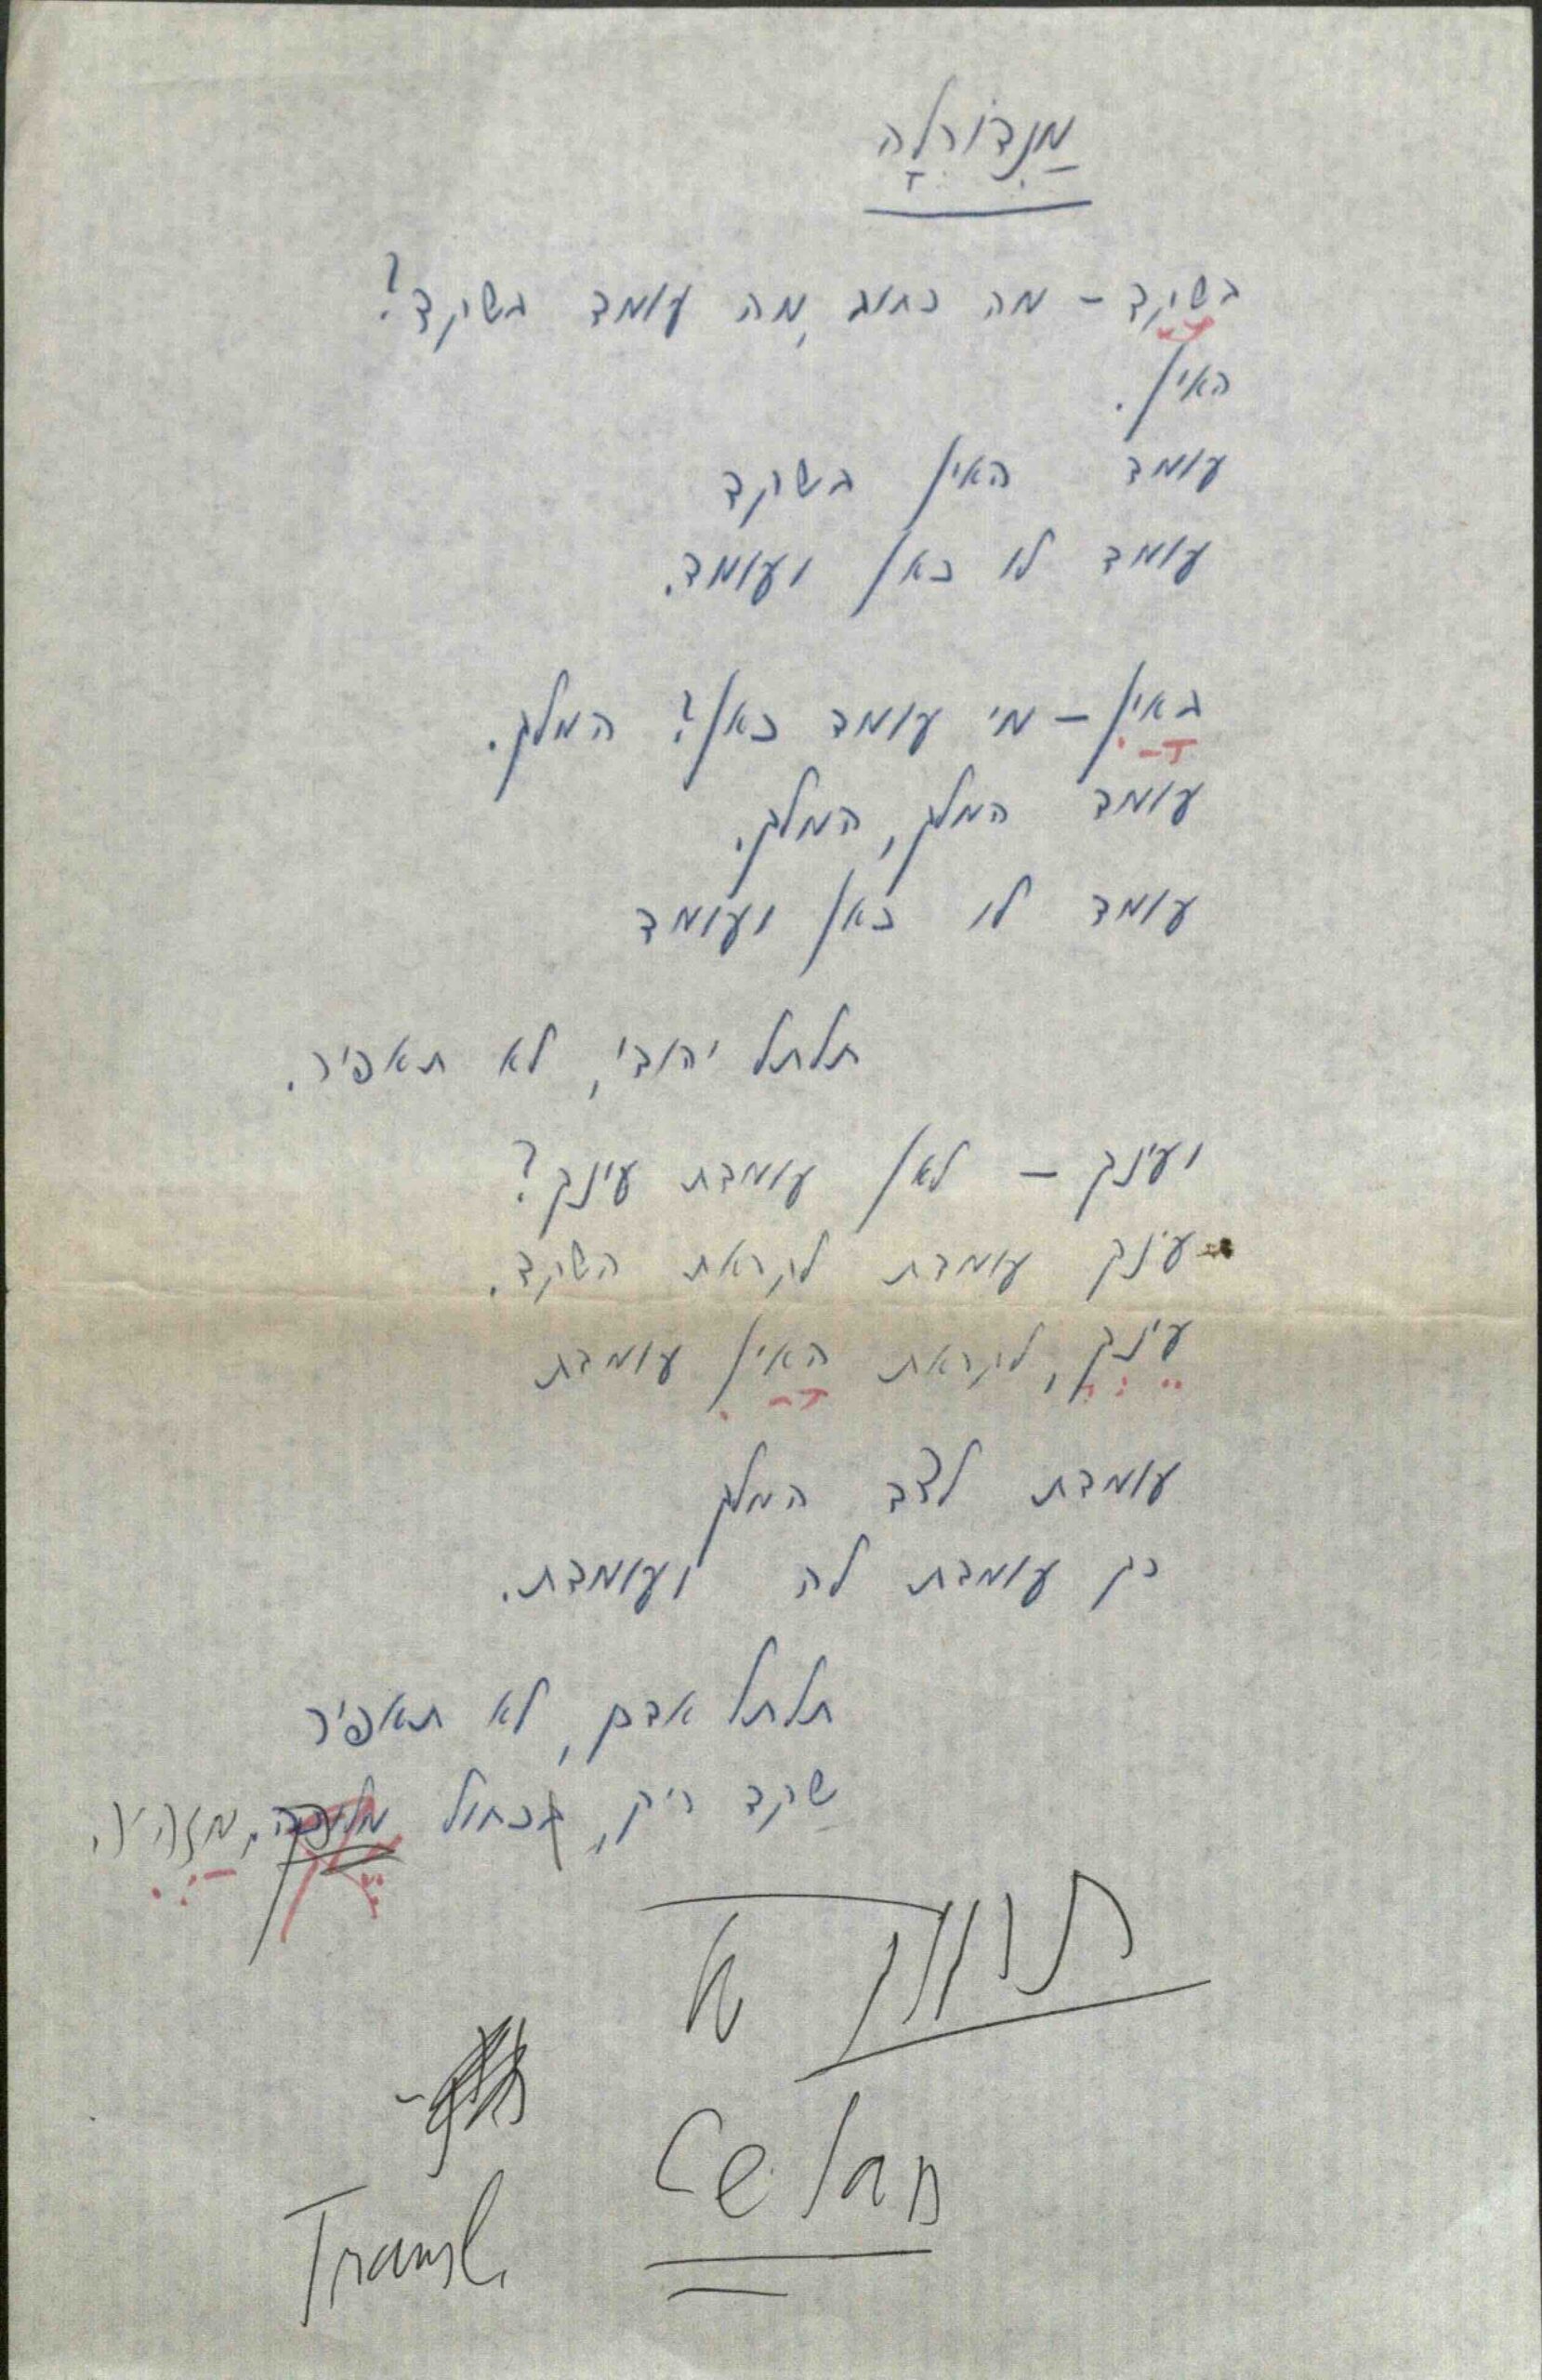 מַנְדּוֹרְלָה
בשקד – מה כתוב, מה עומד בשקד?
האין.
עומד האין בשקד
עומד לו כאן ועומד.
בָאַיִן – מי עומד כאן? המלך.
עומד המלך, המלך.
עומד לו כאן ועומד
תלתל יהודי, לא תאפיר.
ועינך – לאן עומדת עינך?
עינך עומדת לקראת השקד.
עֵינְךָ, לקראת הָאַיִן עומדת
עומדת לצד המלך
כך עומדת לה ועומדת.
תלתל אדם, לא תאפיר
שקד ריק, כחול
של
Celan
Transl.